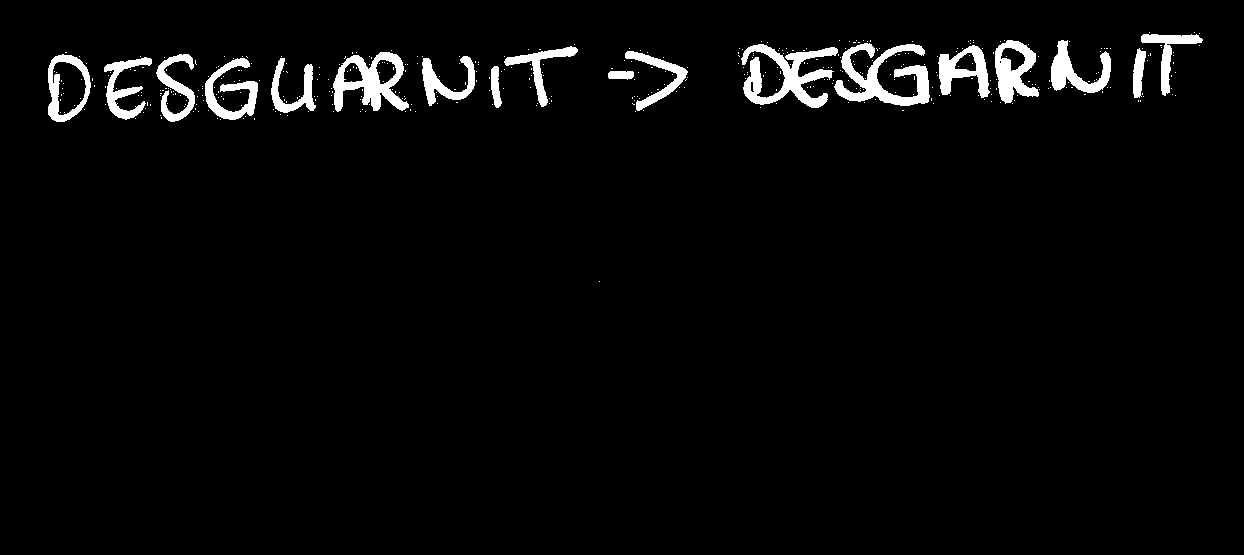 DESGUARNIT -> DESGARNIT